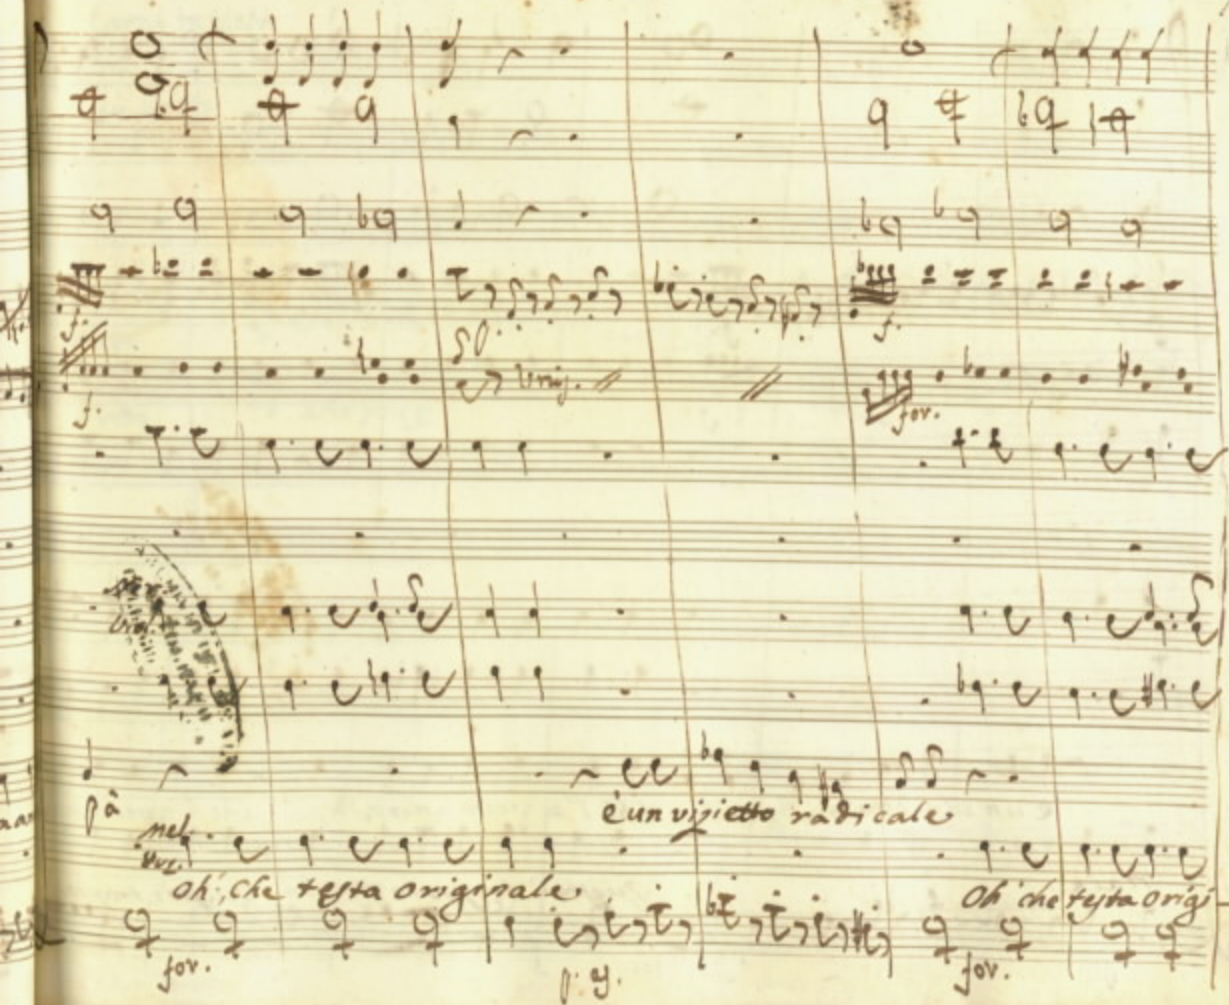 f.
Unis.
f.
f.
for.
pà
è un vizietto radicale
Oh, che testa originale
Oh che testa origi
for.
for.